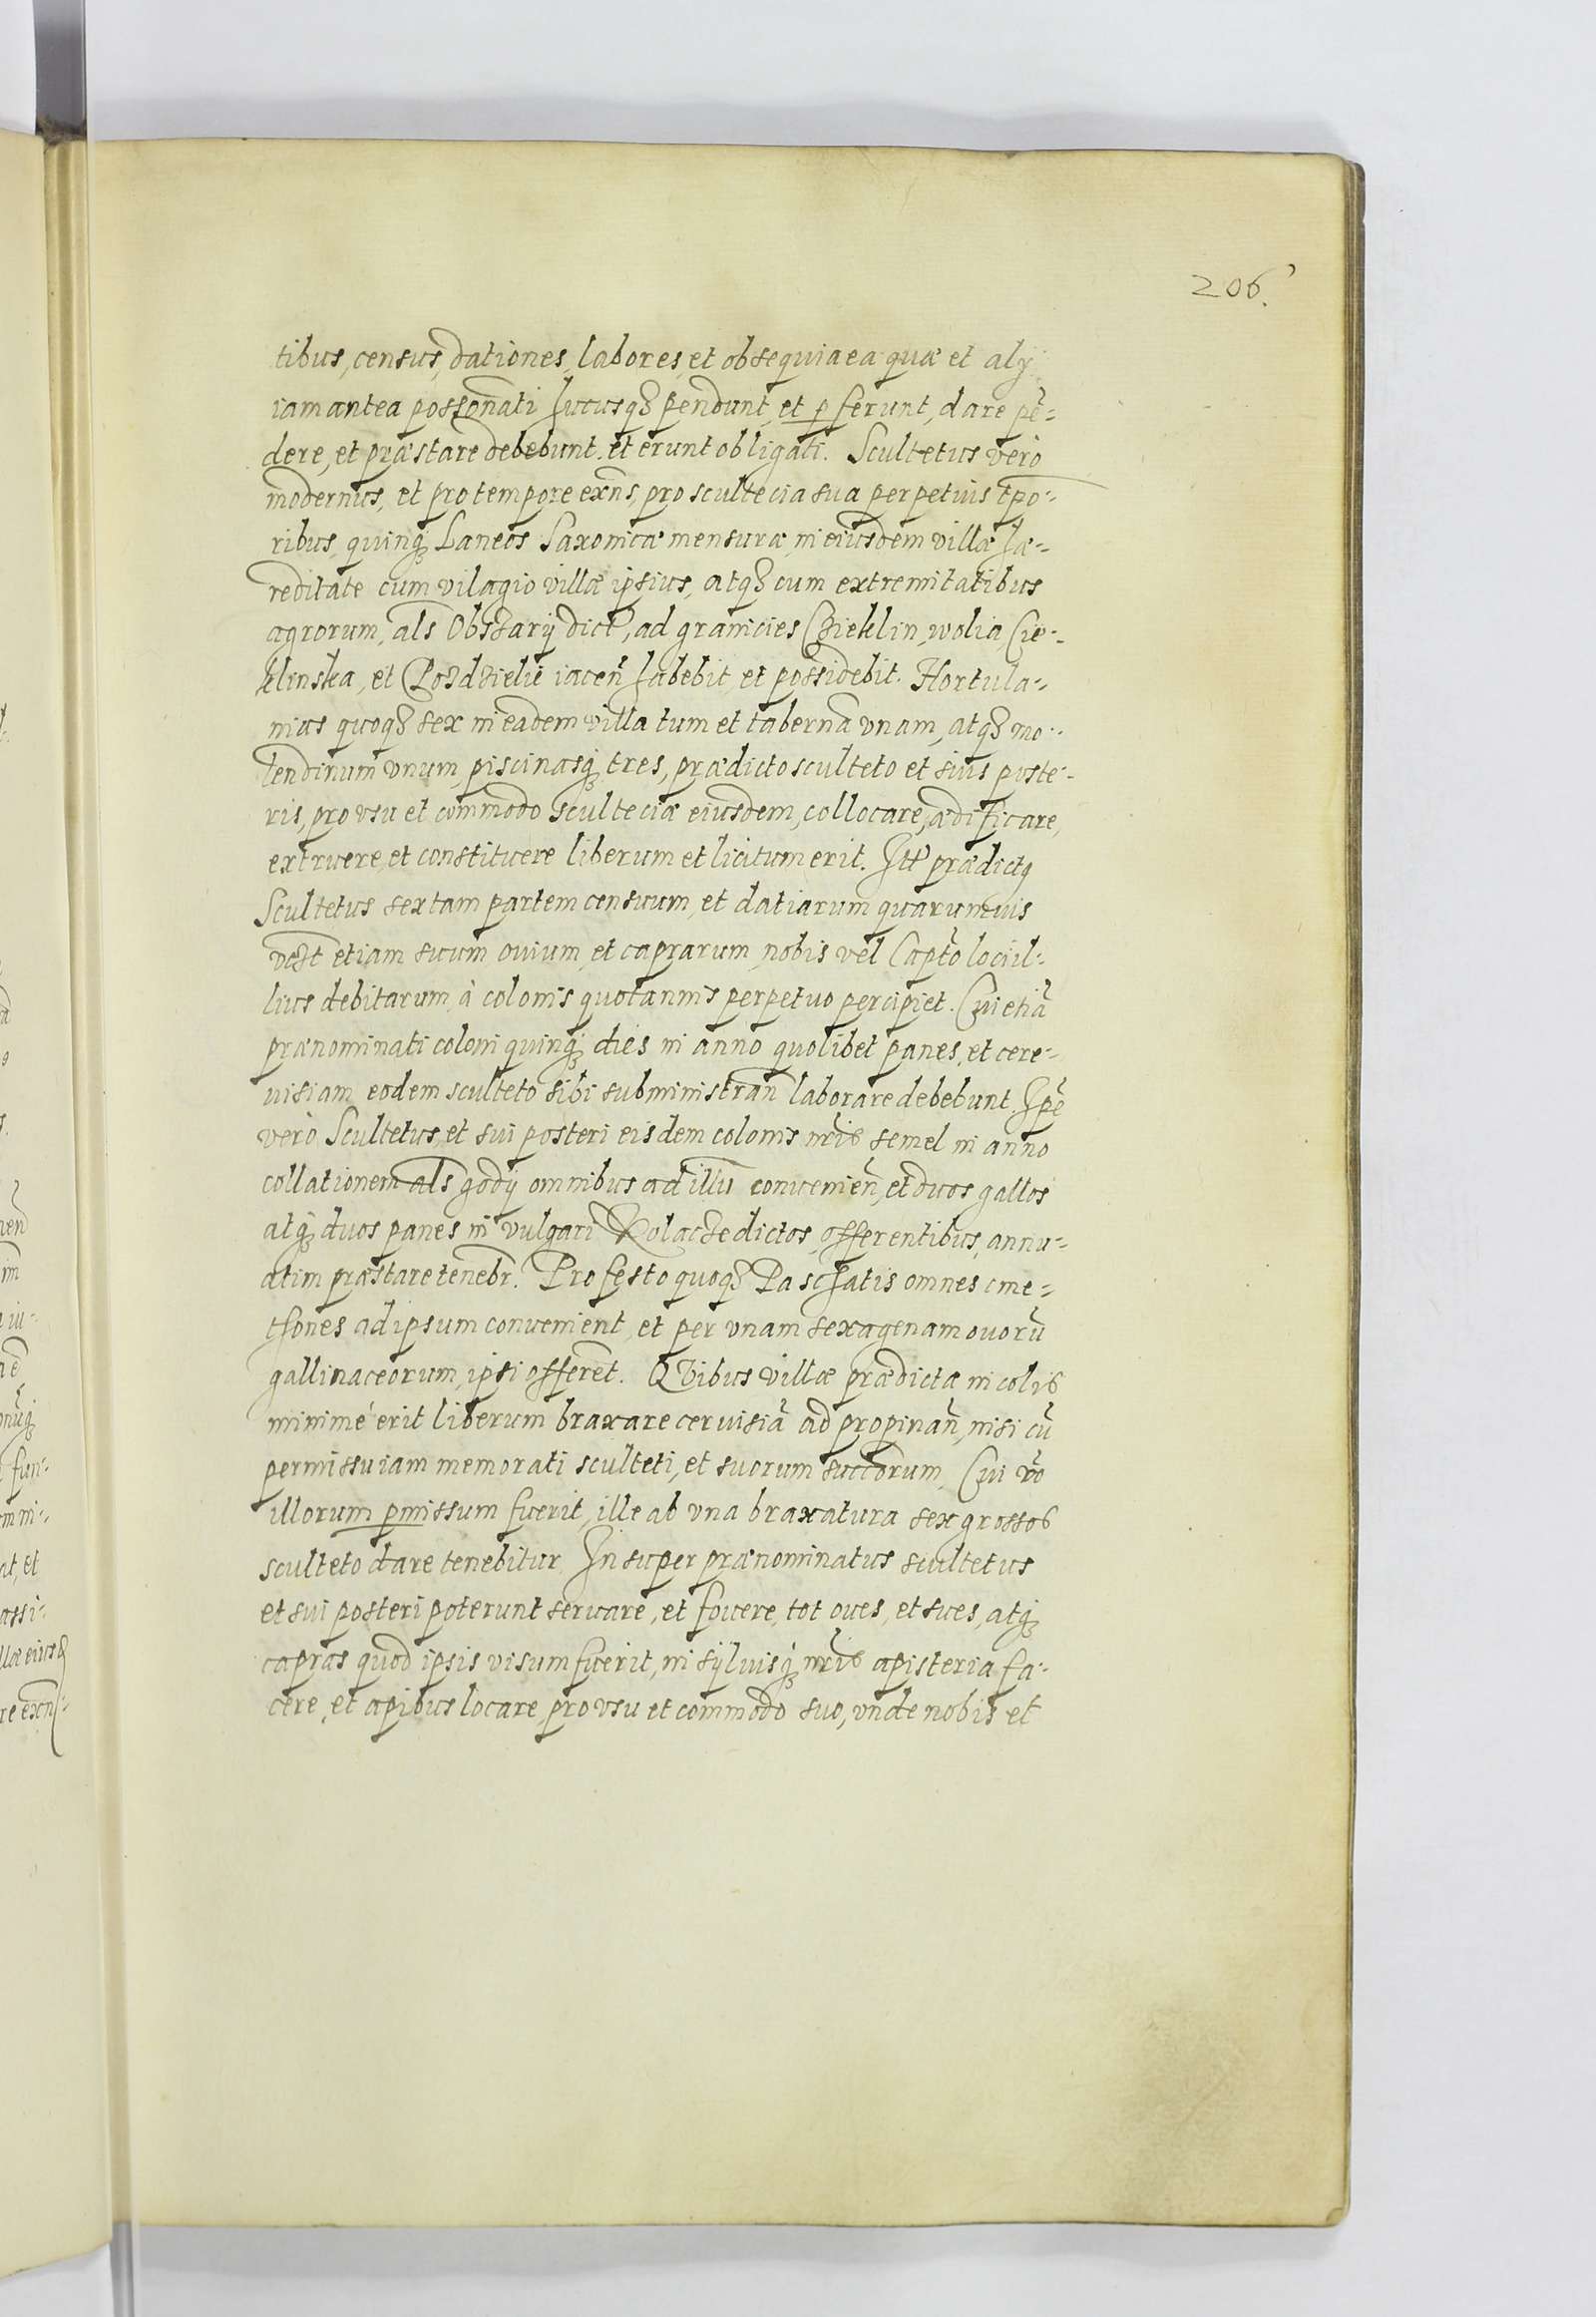 206.
tibus, census, dationes, labores, et obsequia ea quæ et alÿ
iam antea possoñati hucusqȝ pendunt, et p ferunt, dare pē-
dere, et præstare debebunt et erunt obligati. Scultetus verò
modernus, et pro tempore exñs, pro scultecia sua perpetuis tpo-
ribus, quinqȝ Laneos Saxonicæ mensuræ, in eiusdem villæ hæ-
reditate cum vilagio villæ ipsius, atqȝ cum extremitatibus
agrorum, als Obszarÿ dict, ad granicies Czieklin, wolia Cie-
klinska, et Pozdzielie iaceñ habebit, et possidebit. Hortula-
nias quoqȝ sex in eadem villa tum et tabernā vnam, atqȝ mo-
lendinum vnum, piscinasqȝ tres, prædicto sculteto et suis poste-
ris, pro vsu et commodo sculteciæ eiusdem, collocare, ædificare,
extruere, et constituere liberum et licitum erit. Itē prædictꝯ
Scultetus sextam partem censuum, et datiarum quarumuis
vtst etiam suum ouium, et caprarum, nobis vel Capto loci il-
lius debitarum, à colonis quotannis perpetuo percipiet. Cui etiā
prænominati coloni quinqȝ dies in anno quolibet panes, et cere-
uisiam eodem sculteto sibi subministrañ laborare debebunt. Ipē
verò Scultetus, et sui posteri eisdem colonis nris semel in anno
collationem als godÿ omnibus ad illū conuenieñ, et duos gallos
atqȝ duos panes in vulgari Kolacze dictos, offerentibus, annu-
atim præstare tenebr. Pro festo quoqȝ Paschatis omnes cme-
thones ad ipsum conuenient, et per vnam sexagenam ouorū
gallinaceorum, ipsi offeret. QVibus villæ prædictæ incolis
minimè erit liberum braxare ceruisiā ad propinañ, nisi cū
permissu iam memorati sculteti, et suorum succorum. Cui vo
illorum pmissum fuerit, ille ab vna braxatura sex grossos
sculteto dare tenebitur. Insuper prænominatus scultetus
et sui posteri poterunt seruare, et fouere, tot oues, et sues, atqȝ
capras quod ipsis visum fuerit, in sÿluisqȝ nris apisteria fa-
cere, et apibus locare, pro vsu et commodo suo, vnde nobis et